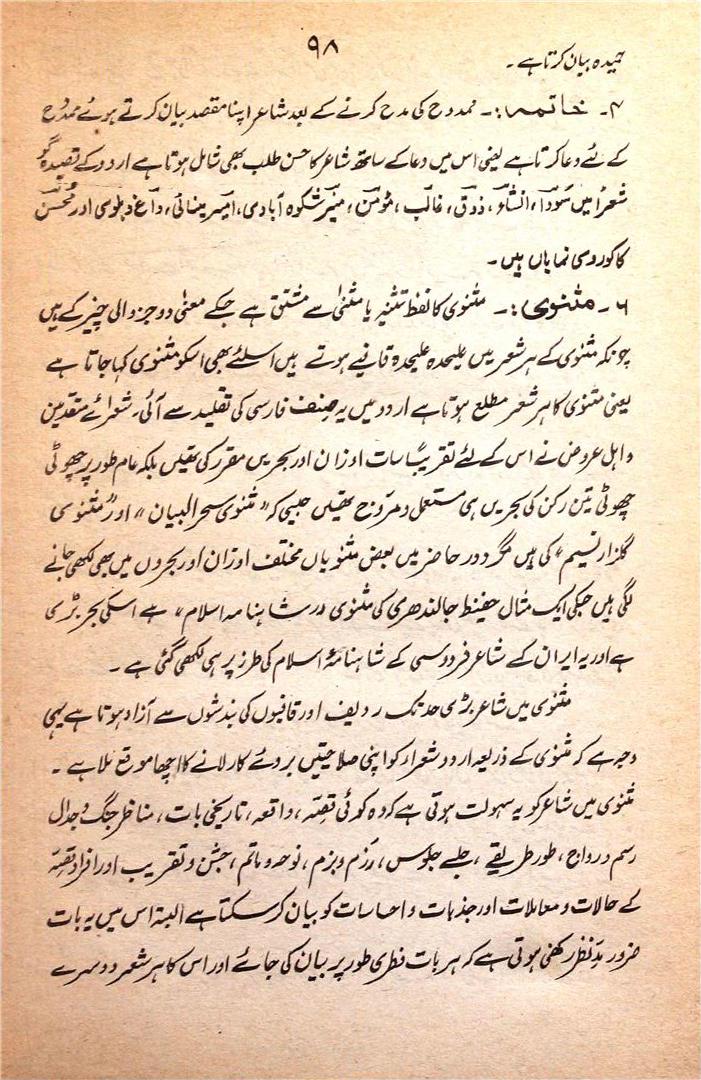 ۹۸
حمیدہ بیان کرتا ہے۔
۴۔ خاتمہ:۔ ممدوح کی مدح کرنے کے بعد شاعر اپنا مقصد بیان کرتے ہوئے ممدوح
کے لئے دعا کرتا ہے یعنی اس میں دعا کے ساتھ شاعر کا حسن طلب بھی شامل ہوتا ہے اردو کے قصیدہ گو
شعرا میں سودا، انشاء، ذوق، غالب، مومن، منیر شکوہ آبادی، امیر مینائی، داغ دہلوی اور محسن
کاکوروی نمایاں ہیں۔
۶۔ مثنوی:۔ مثنوی کا لفظ تثنیہ یا مثنیٰ سے مشتق ہے جسکے معنی دو جزو والی چیز کے ہیں
چونکہ مثنوی کے ہر شعر میں علیحدہ علیحدہ قافیے ہوتے ہیں اسلئے بھی اسکو مثنوی کہا جاتا ہے
یعنی مثنوی کا ہر شعر مطلع ہوتا ہے اردو میں یہ صنف فارسی کی تقلید سے آئی۔ شعرائے متقدمین
و اہل عروض نے اس کے لئے تقریباً سات اوزان اور بحریں مقرر کی تھیں بلکہ عام طور پر چھوٹی
چھوٹی تین رکن کی بحریں ہی مستعمل و مروج تھیں جیسی کہ "مثنوی سحر البیان" اور "مثنوی
گلزار نسیم" کی ہیں مگر دور حاضر میں بعض مثنویاں مختلف اوزان اور بحروں میں بھی لکھی جانے
لگی ہیں جسکی ایک مثال حفیظ جالندھری کی مثنوی "شاہنامہ اسلام" ہے اسکی بحر بڑی
ہے اور یہ ایران کے شاعر فردوسی کے شاہنامۂ اسلام کی طرز پر ہی لکھی گئی ہے۔
مثنوی میں شاعر بڑی حد تک ردیف اور قافیوں کی بندشوں سے آزاد ہوتا ہے یہی
وجہ ہے کہ مثنوی کے ذریعہ اردو شعراء کو اپنی صلاحیتیں بروئے کار لانے کا اچھا موقع ملا ہے۔
مثنوی میں شاعر کو یہ سہولت ہوتی ہے کہ وہ کوئی قصہ، واقعہ، تاریخی بات، مناظر جنگ و جدال
رسم و رواج، طور طریقے، جلسے جلوس، رزم و بزم، نوحہ و ماتم، جشن و تقریب اور افراد قصہ
کے حالات و معاملات اور جذبات و احساسات کو بیان کر سکتا ہے البتہ اس میں یہ بات
ضرور مدِ نظر رکھنی ہوتی ہے کہ ہر بات فطری طور پر بیان کی جائے اور اس کا ہر شعر دوسرے